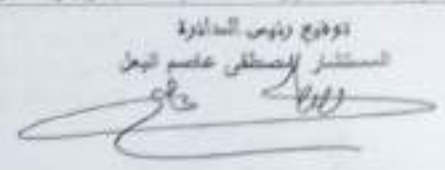 توقيع رئيس الدائرة
المستشار المصطفى عاصم